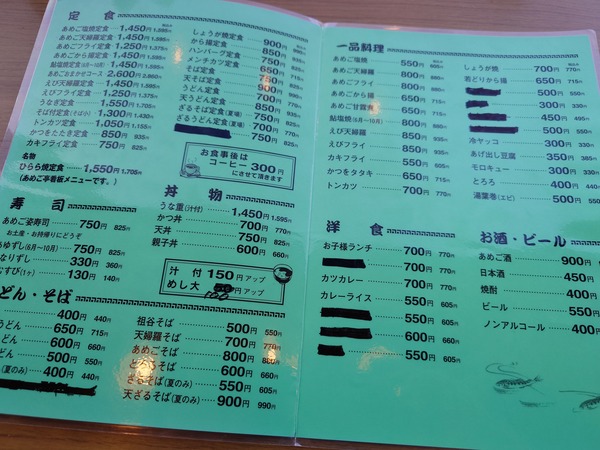 定食
あめご塩焼定食 1,450円 1,595円
あめご天婦羅定食 1,450円 1,595円
あめごフライ定食 1,250円 1,375円
あめごから揚定食 1,450円 1,595円
鮎塩焼定食(6月〜10月) 1,450円 1,595円
あめごおまかせコース 2,600円 2,860円
えび天婦羅定食 1,450円
えびフライ定食 1,250円 1,375円
うなぎ定食 1,550円 1,705円
そば付定食(そば小) 1,300円 1,430円
トンカツ定食 1,050円 1,155円
かつをたたき定食 850円 935円
カキフライ定食 750円 825円
名物
ひらら焼定食 1,550円 1,705円
(あめご亭看板メニューです。)
しょうが焼定食 900円
から揚定食 850円
ハンバーグ定食 750円
メンチカツ定食 650円
そば定食 750円
天そば定食 900円
うどん定食 700円
天うどん定食 850円
ざるそば定食(夏場) 750円 825円
ざるうどん定食(夏場) 700円 770円
750円 825円
お食事後は
コーヒー300円
にさせて頂きます
寿司
あめご姿寿司 750円 825円
お土産・お持帰りにどうぞ
あゆずし(6月〜10月) 750円 825円
なりずし 330円 360円
むすび(1ヶ) 130円 140円
丼物
うな重(汁付) 1,450円 1,595円
かつ丼 700円 770円
天丼 750円 825円
親子丼 600円 660円
汁付 150円アップ
めし大 100円アップ
どん・そば
400円 440円
うどん 650円 715円
どん 600円 660円
どん 500円 550円
(夏のみ) 400円 440円
祖谷そば 500円 550円
天婦羅そば 700円 770円
あめごそば 800円 880円
とろろそば 600円 660円
ざるそば(夏のみ) 550円 605円
天ざるそば(夏のみ) 900円 990円
一品料理
あめご塩焼 550円 605円
あめご天婦羅 800円 880円
あめごフライ 650円 715円
あめごから揚 650円 715円
あめご甘露煮 650円 715円
鮎塩焼(6月〜10月) 800円 880円
えび天婦羅 850円 935円
えびフライ 850円 935円
カキフライ 550円 605円
かつをタタキ 650円 715円
トンカツ 700円 770円
しょうが焼 700円 770円
若どりから揚 650円 715円
500円 550円
300円 330円
450円 495円
500円 550円
冷ヤッコ 300円 330円
あげ出し豆腐 350円 385円
モロキュー 300円 330円
とろろ 400円 440円
湯葉巻(エビ) 500円 550円
洋食
お子様ランチ 700円 770円
700円 770円
カツカレー 700円 770円
カレーライス 550円 605円
550円 605円
600円 660円
550円 605円
お酒・ビール
あめご酒 900円
日本酒 450円
焼酎 400円
ビール 550円
ノンアルコール 400円